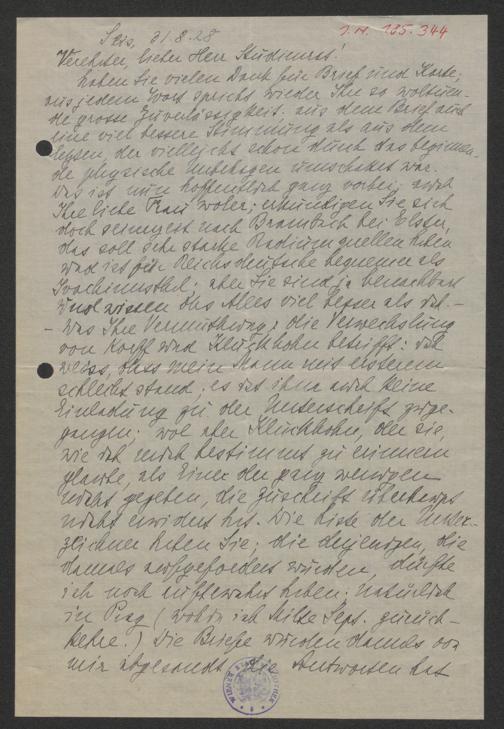 I.N. 165.344
Seis, 31.8.28
Verehrter, lieber Herr Studienrat!
haben Sie vielen Dank für Brief und Karte;
aus jedem Wort spricht wieder Ihre so woltuen-
de grosse Zuverlässigkeit; aus dem Brief auch
eine viel bessere Stimmung als aus dem
letzten, der vielleicht schon durch das beginnen-
de physische Unbehagen umschattet war.
Das ist nun hoffentlich ganz vorbei; auch
Ihre liebe Frau woler; erkundigen Sie sich
doch wegen Brambach bei Elster,
das soll sehr starke Radiumquellen haben
und ist für Reichsdeutsche bequemer als
Joachimsthal; aber Sie sind ja benachbart
und wissen das Alles viel besser als ich. –
– Was Ihre Vermuthung: die Verwechslung
von Korff und Kluckhohn betrifft: ich
weiss, dass mein Mann mit ersterem
schlecht stand; es ist ihm auch keine
Einladung zu der Unterschrift zuge-
gangen; wol aber Kluckhohn, der sie,
wie ich mich bestimmt zu erinnern
glaube, als Einer der ganz wenigen
nicht gegeben, die Zuschrift überhaupt
nicht erwidert hat. Die Liste der Unter-
zeichner haben Sie; die derjenigen, die
damals aufgefordert wurden, dürfte
ich noch aufbewahrt haben; natürlich
in Prag (wohin ich Mitte Sept. zurück-
kehre.) Die Briefe wurden damals von
mir abgesandt, die Antworten hat